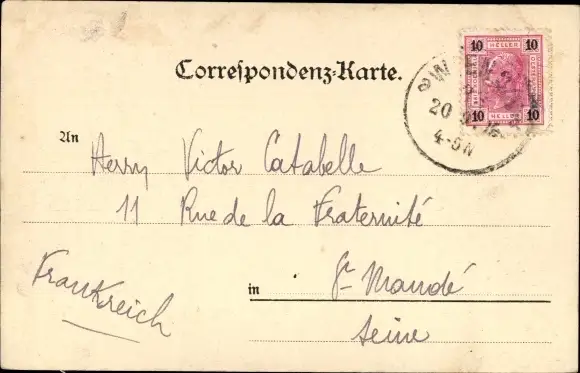 Correspondenz-Karte.
10 HELLER 10
10 HELLER 10
20
4-5N
An
Herrn Victor Catabelle
11 Rue de la Fraternité
in St Mandé
Seine
Frankreich